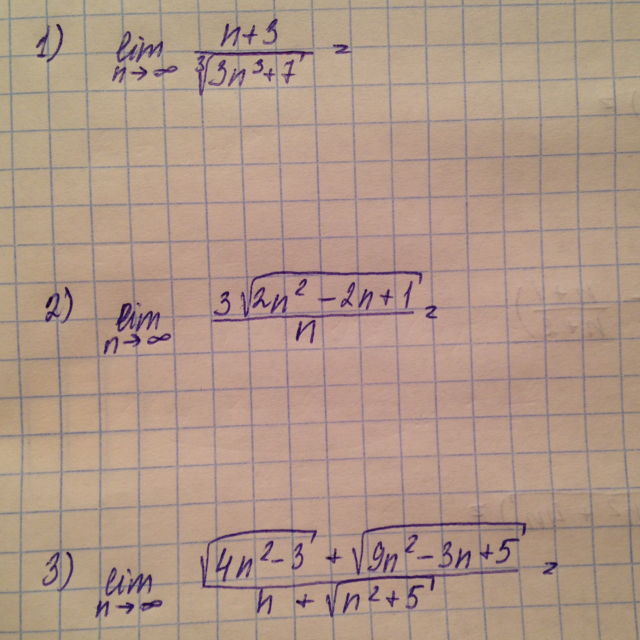 1) lim n→∞ (n+3)/(∛(3n³+7)) =
2) lim n→∞ (3√(2n²-2n+1))/n =
3) lim n→∞ (√(4n²-3) + √(9n²-3n+5))/(n + √(n²+5)) =